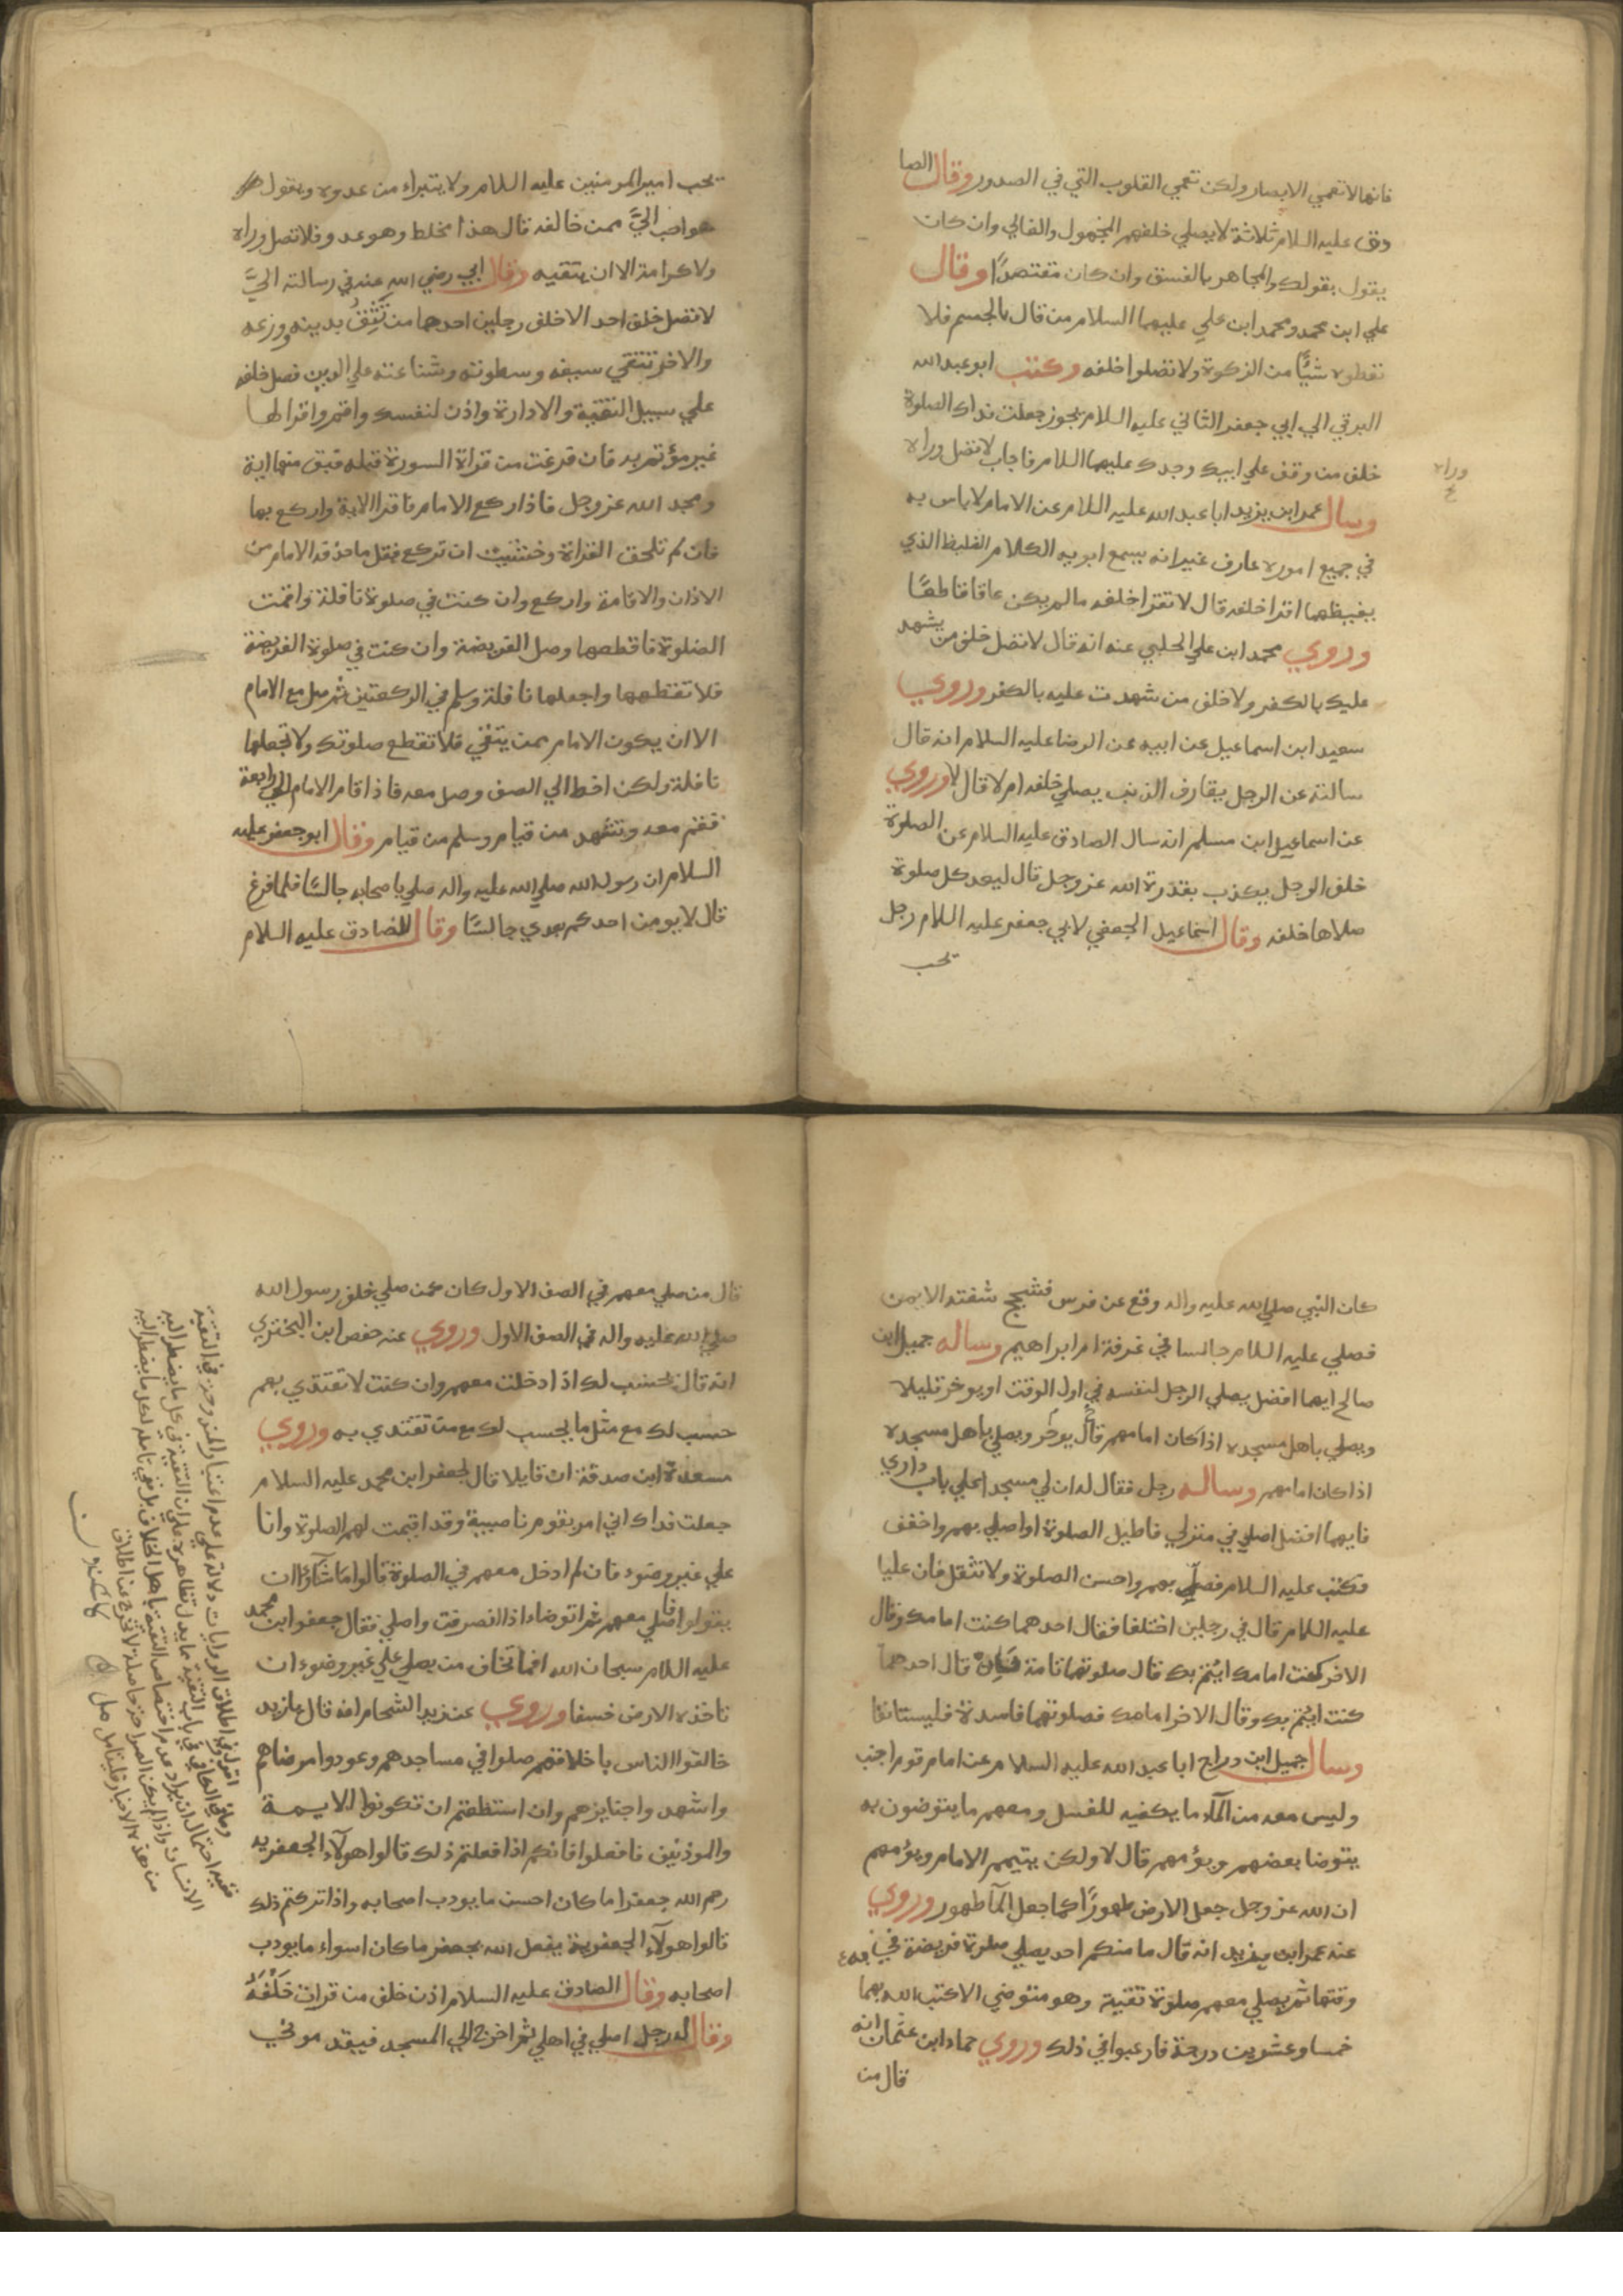 فانها لا تعمي الابصار ولكن تعمي القلوب التي في الصدور وقال الصا
دق عليه السلام ثلاثة لا يصلي خلفهم المجهول والغالي وان كان
يقول بقولك والمجاهر بالفسق وان كان مقتصدًا وقال
علي ابن محمد ومحمد ابن علي عليهما السلام من قال بالجسم فلا
تعطوه شيًا من الزكوة ولا تصلوا خلفه وكتب ابو عبد الله
البرقي الي ابي جعفر الثاني عليه السلام يجوز جعلت فداك الصلوة
خلف من وقف علي ابيك وجدك عليهما السلام فاجاب لا تصل وراه
وراه
خ
وسال عمر ابن يزيد ابا عبد الله عليه السلام عن الامام لا باس به
في جميع اموره عارف غير انه يسمع ابويه الكلام الغليظ الذي
يغيظهما اقرا خلفه قال لا تقرا خلفه ما لم يكن عاقا قاطعًا
وروي محمد ابن علي الحلبي عنه انه قال لا تصل خلف من يشهد
عليك بالكفر ولا خلف من شهدت عليه بالكفر وروي
سعيد ابن اسماعيل عن ابيه عن الرضا عليه السلام انه قال
سالته عن الرجل يقارف الذنب يصلي خلفه ام لا قال لا وروي
عن اسماعيل ابن مسلم انه سال الصادق عليه السلام عن الصلوة
خلف الرجل يكذب بقدرة الله عز وجل قال ليعد كل صلوة
صلاها خلفه وقال اسماعيل الجعفي لابي جعفر عليه السلام رجل
يحب
يحب امير المومنين عليه السلام ولا يتبراء من عدوه ويقول
هو احب اليَّ ممن خالفه قال هذا مخلط وهو عدو فلا تصل وراه
ولا كرامة الا ان يتقيه وقال ابي رضي الله عنه في رسالته اليَّ
لا تصل خلف احد الا خلف رجلين احدهما من تثق بدينه وورعه
والاخر تتقي سيفه وسطوته وشناعته علي الدين فصل خلفه
علي سبيل التقية والادارة واذن لنفسك واقم واقرا لها
غير مؤتم به فان فرغت من قراة السورة قبله فبق منها اية
ومجد الله عز وجل فاذا ركع الامام فاقرا الاية واركع بها
فان لم تلحق القراة وخشيت ان تركع فقل ما حذفه الامام من
الاذان والاقامة واركع وان كنت في صلوة نافلة واقمت
الصلوة فاقطعها وصل الفريضة وان كنت في صلوة الفريضة
فلا تقطعها واجعلها نافلة وسلم في الركعتين ثم صل مع الامام
الا ان يكون الامام ممن يتقي فلا تقطع صلوتك ولا تجعلها
نافلة ولكن اخط الي الصف وصل معه فاذا قام الامام الي رابعة
فقم معه وتشهد من قيام وسلم من قيام وقال ابو جعفر عليه
السلام ان رسول الله صلي الله عليه واله صلي باصحابه جالسًا فلما فرغ
قال لا يومن احدكم بعدي جالسًا وقال الصادق عليه السلام
كان النبي صلي الله عليه واله وقع عن فرس فشجج شقته الايمن
فصلي عليه السلام جالسا في غرفة ام ابراهيم وساله جميل ابن
صالح ايهما افضل يصلي الرجل لنفسه في اول الوقت او يوخر قليلا
ويصلي باهل مسجده اذا كان امامهم قال يوخر ويصلي باهل مسجده
اذا كان امامهم وساله رجل فقال له ان لي مسجدا علي باب داري
فايهما افضل اصلي في منزلي فاطيل الصلوة او اصلي بهم واخفف
فكتب عليه السلام فصل بهم واحسن الصلوة ولا تثقل فان عليا
عليه السلام قال في رجلين اختلفا فقال احدهما كنت امامك وقال
الاخر كنت امامك ايتم بك قال صلوتهما تامة فان قال احدهما
كنت ايتم بك وقال الاخر امامك فصلوتهما فاسدة فليستانفا
وسال جميل ابن دراج ابا عبد الله عليه السلام عن امام قوم اجنب
وليس معه من المآء ما يكفيه للغسل ومعهم ما يتوضون به
يتوضا بعضهم ويؤمهم قال لا ولكن يتيمم الامام ويؤمهم
ان الله عز وجل جعل الارض طهورًا كما جعل المآ طهور وروي
عنه عمر ابن يزيد انه قال ما منكم احد يصلي صلوة فريضة في
وقتها ثم يصلي معهم صلوة تقية وهو متوضي الا كتب الله بهما
خمسا وعشرين درجة فارغبوا في ذلك وروي حماد ابن عثمان انه
قال من
قال من صلي معهم في الصف الاول كان كمن صلي خلف رسول الله
صلي الله عليه واله في الصف الاول وروي عنه حفص ابن البختري
انه قال يحسب لك اذا دخلت معهم وان كنت لا تقتدي بهم
حسب لك مع مثل ما يحسب لك مع من تقتدي به وروي
مسعدة ابن صدقة ان قايلا قال لجعفر ابن محمد عليه السلام
جعلت فداك اني امر بقوم ناصبية وقد اقيمت لهم الصلوة وانا
علي غير وضوء فان لم ادخل معهم في الصلوة قالوا ما شآؤا ان
يقولوا افاصلي معهم ثم اتوضاء اذا انصرفت واصلي فقال جعفر ابن محمد
عليه السلام سبحان الله افما تخاف من يصلي علي غير وضوء ان
تاخذه الارض خسفا وروي عنه زيد الشحام انه قال يا زيد
خالقوا الناس باخلاقهم صلوا في مساجدهم وعودوا مرضاهم
واشهدوا جنايزهم وان استطعتم ان تكونوا الايمة
والموذنين فافعلوا فانكم اذا فعلتم ذلك قالوا هولآء الجعفريه
رحم الله جعفرا ما كان احسن ما يودب اصحابه واذا تركتم ذلك
قالوا هولآء الجعفرية يفعل الله بجعفر ما كان اسواء ما يودب
اصحابه وقال الصادق عليه السلام اذن خلف من قرات خلفه
وقال له رجل اصلي في اهلي ثم اخرج الي المسجد فيقدموني